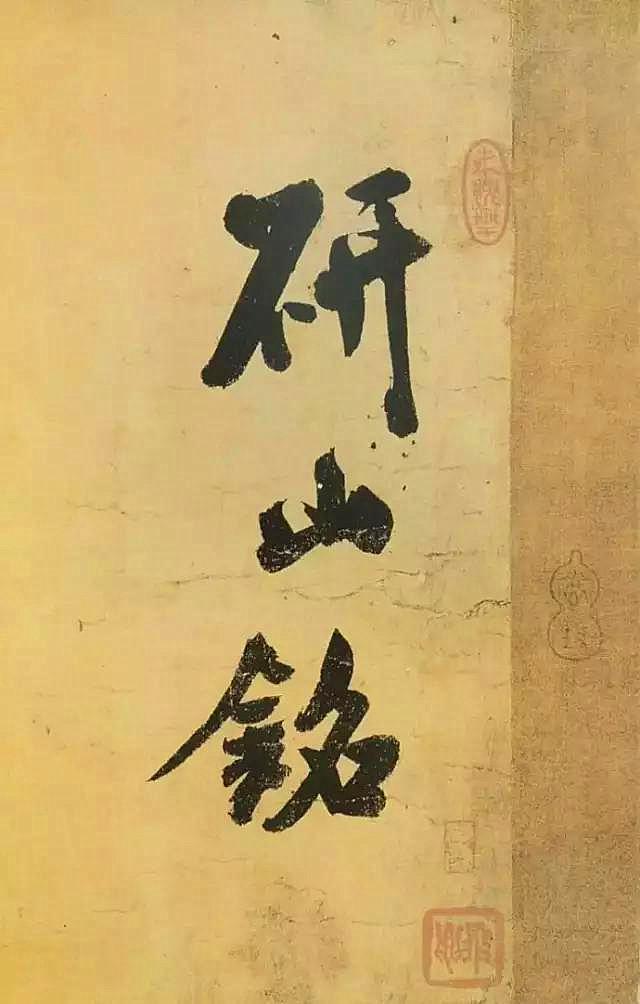 研山銘